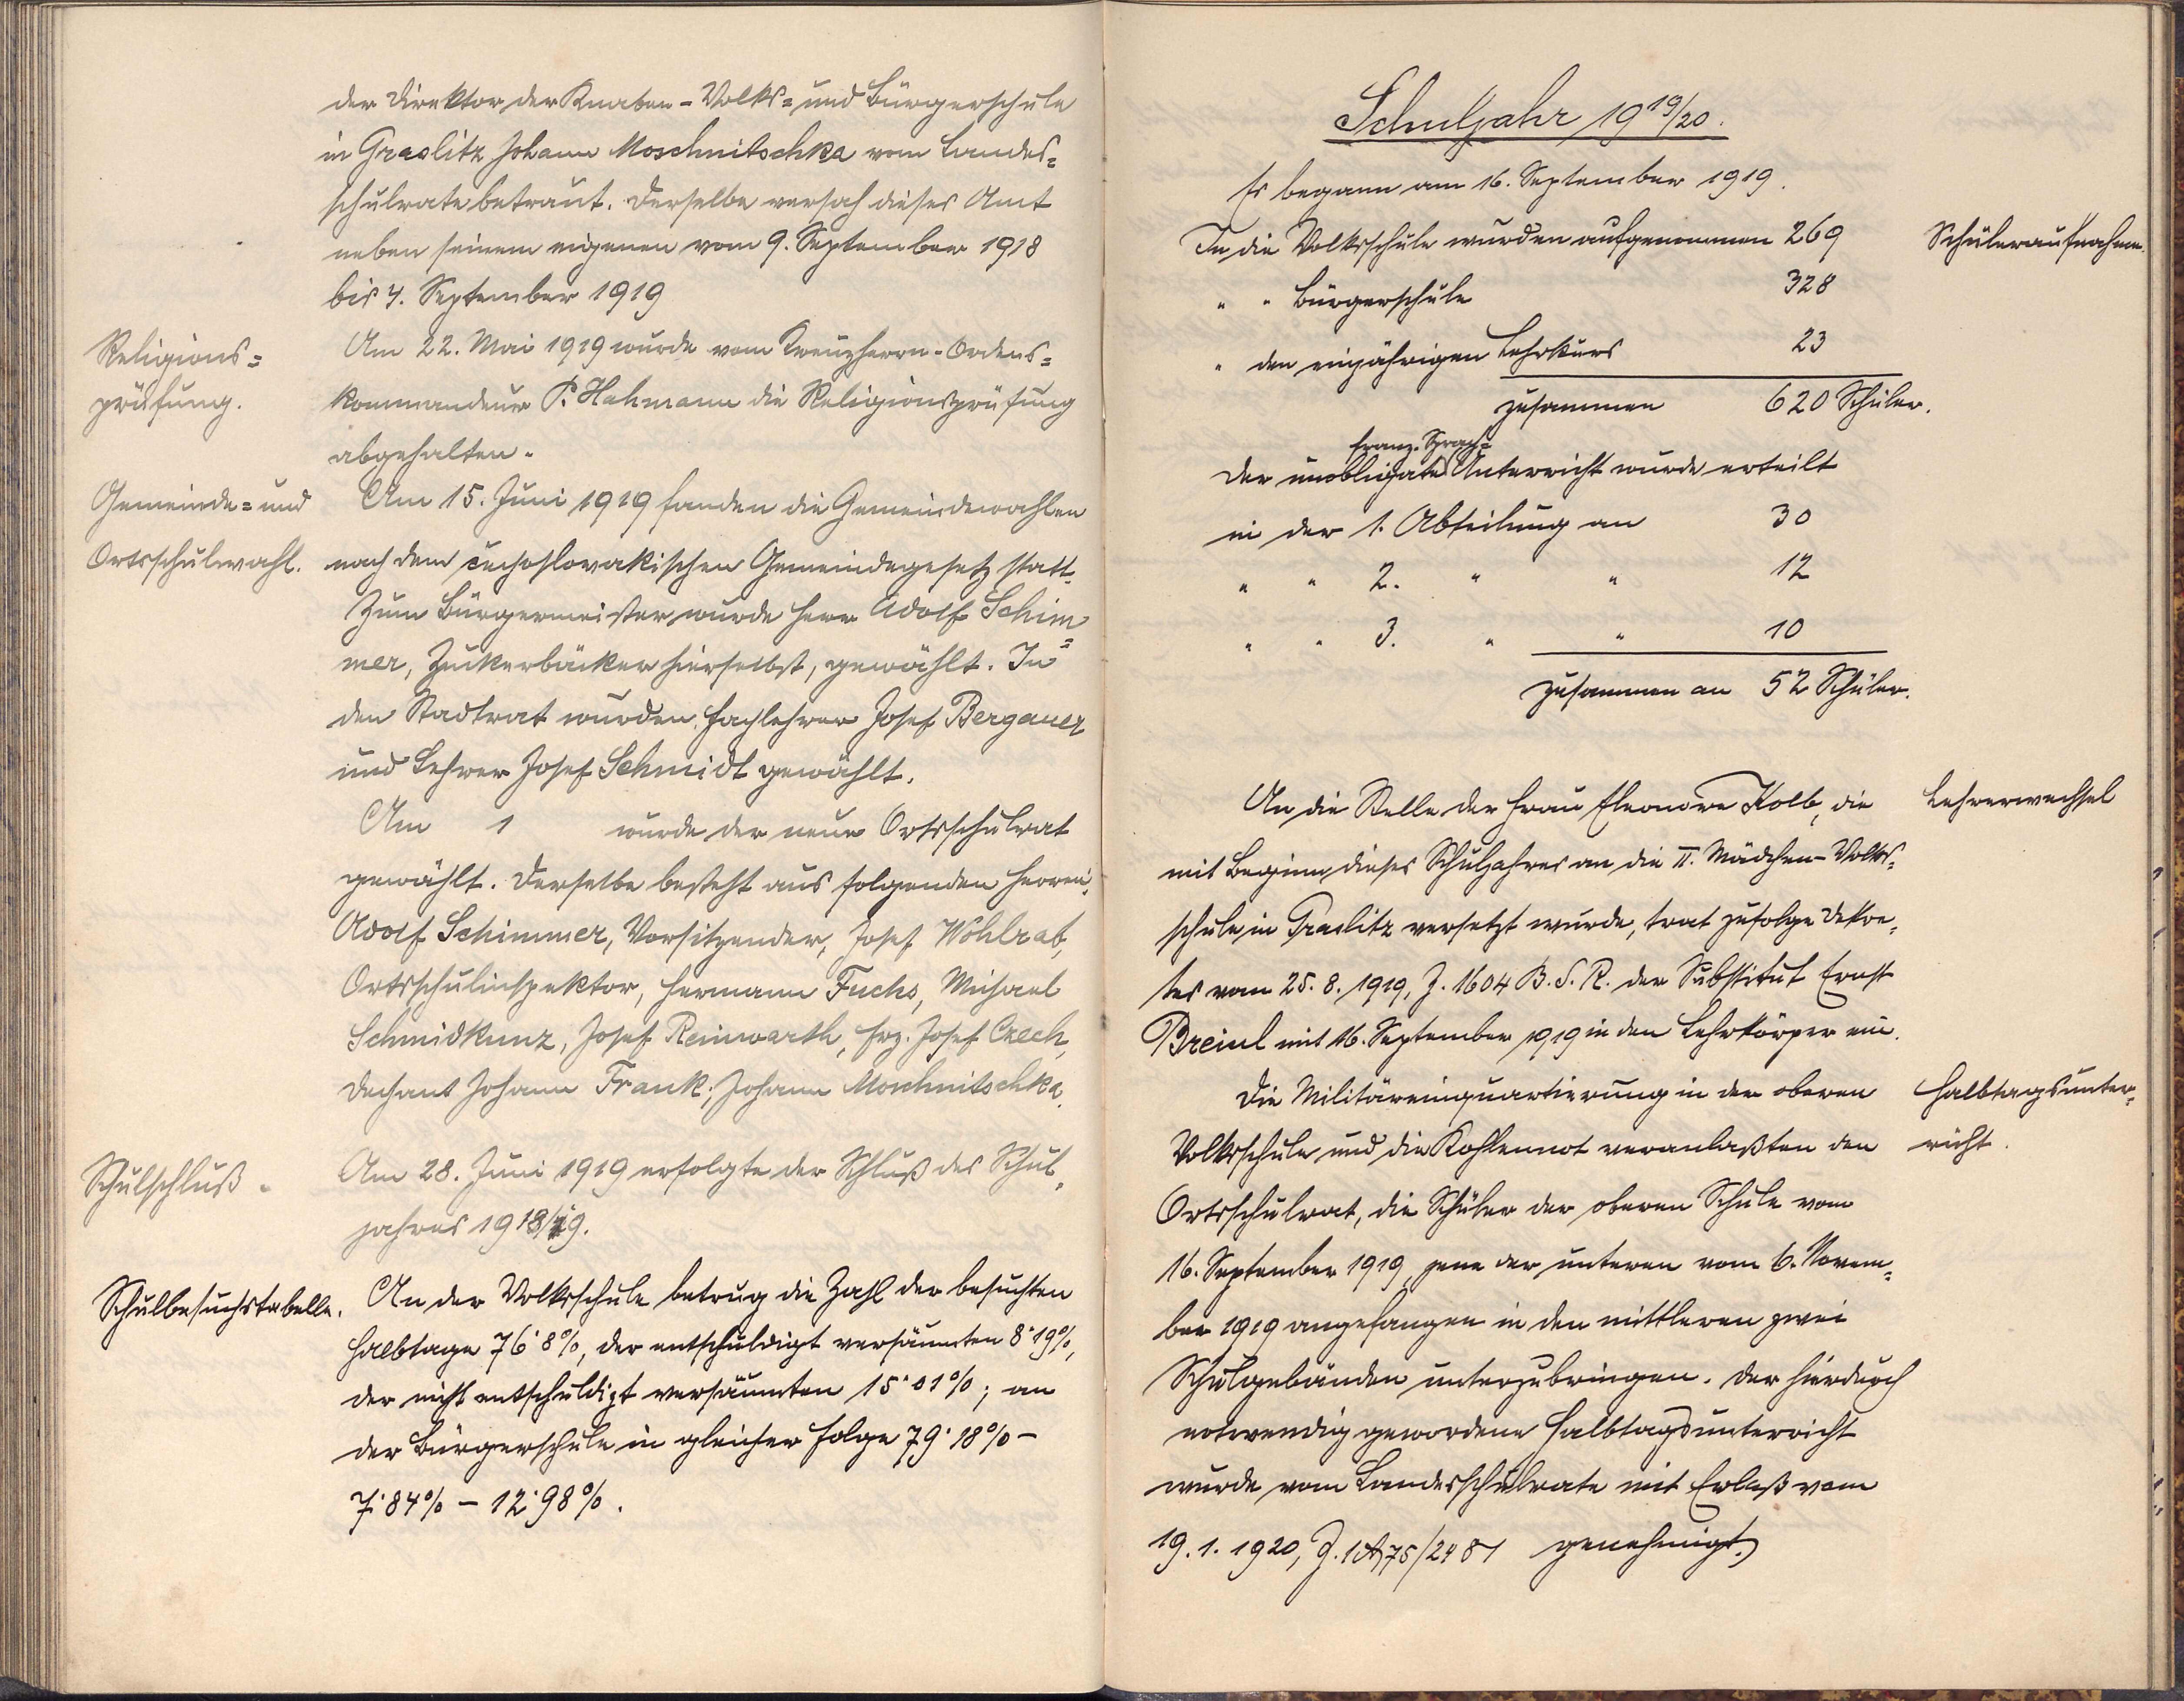 der Direktor der Knaben-Volks= und Bürgerschule
in Graslitz Johann Moschnitschka vom Landes=
schulrate betraut. Derselbe versah dieses Amt
neben seinem eigenen vom 9. September 1918
bis 4. September 1919
Religions=
prüfung.
Am 22. Mai 1919 wurde vom Kreuzherrn-Ordens=
kommandeur P. Hahmann die Religionsprüfung
abgehalten.
Gemeinde= und
Ortsschulwahl.
Am 15. Juni 1919 fanden die Gemeindewahlen
nach dem čechoslovakischen Gemeindegesetz statt.
Zum Bürgermeister wurde Herr Adolf Schim=
mer, Zuckerbäcker hierselbst, gewählt. In
den Stadtrat wurden Fachlehrer Josef Bergauer
und Lehrer Josef Schmidt gewählt.
Am 1 wurde der neue Ortsschulrat
gewählt. Derselbe besteht aus folgenden Herren:
Adolf Schimmer, Vorsitzender, Josef Wohlrab,
Ortsschulinspektor, Hermann Fuchs, Michael
Schmidkunz, Josef Reinwarth, Frz. Josef Czech,
Dechant Johann Frank, Johann Moschnitschka.
Schulschluß.
Am 28. Juni 1919 erfolgte der Schluß des Schul=
jahres 1918/19.
Schulbesuchstabelle.
An der Volksschule betrug die Zahl der besuchten
Halbtage 76·8%, der entschuldigt versäumten 8·19%,
der nicht entschuldigt versäumten 15·01%; an
der Bürgerschule in gleicher Folge 79·18% –
7·84% – 12·98%.
Schuljahr 1919/20.
Es begann am 16. September 1919.
In die Volksschule wurden aufgenommen 269
Schüleraufnahme.
" " Bürgerschule 328
" den einjährigen Lehrkurs 23
zusammen 620 Schüler.
franz. Sprach=
Der unobligate Unterricht wurde erteilt
in der 1. Abteilung an 30
" " 2. " " 12
" " 3. " " 10
zusammen an 52 Schüler.
An die Stelle der Frau Eleonore Kolb, die
Lehrerwechsel
mit Beginn dieses Schuljahres an die II. Mädchen-Volks=
schule in Graslitz versetzt wurde, trat zufolge Dekre=
tes vom 25. 8. 1919, Z. 1604 B. S. R. der Substitut Ernst
Breinl mit 16. September 1919 in den Lehrkörper ein.
Die Militäreinquartierung in der oberen
Halbtagsunter=
richt.
Volksschule und die Kohlennot veranlaßten den
Ortsschulrat, die Schüler der oberen Schule vom
16. September 1919, jene der unteren vom 6. Novem=
ber 1919 angefangen in den mittleren zwei
Schulgebäuden unterzubringen. Der hierdurch
notwendig gewordene Halbtagsunterricht
wurde vom Landesschulrate mit Erlaß vom
19. 1. 1920, Z. 1A75/2481 genehmigt.